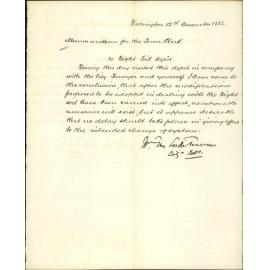 Wellington 12th December 1882
Memorandum for the Town Clerk.
re Night Soil Depôt
Having this day visited this depôt in company
with the City Surveyor and yourself I have come to
the conclusion that after the modifications
proposed to be adopted in dealing with the Night
soil have been carried into effect, no
nuisance will exist but it appears desirable
that no delay should take place in giving effect
to the intended change of system.